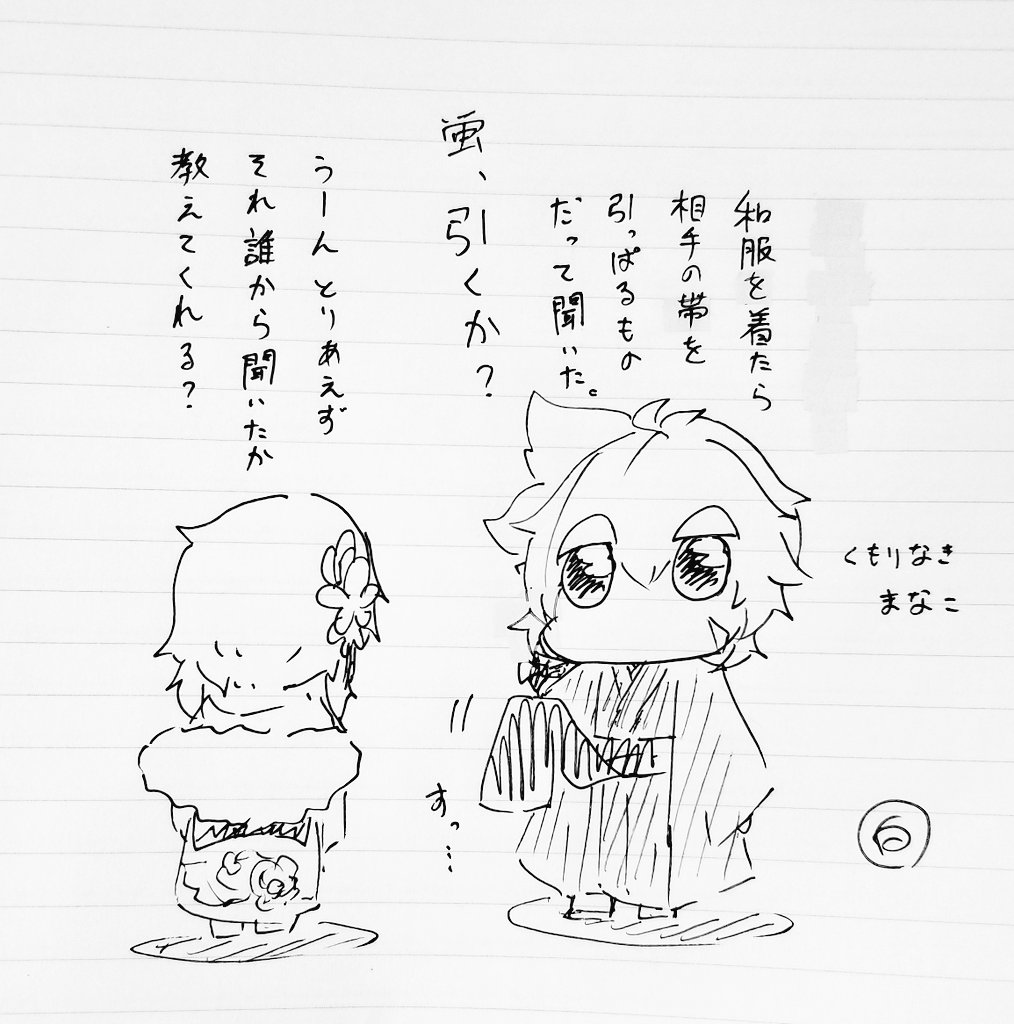 和服を着たら
相手の帯を
引っぱるもの
だって聞いた。
蛍、引くか?
うーんとりあえず
それ誰から聞いたか
教えてくれる?
くもりなき
まなこ
すっ…